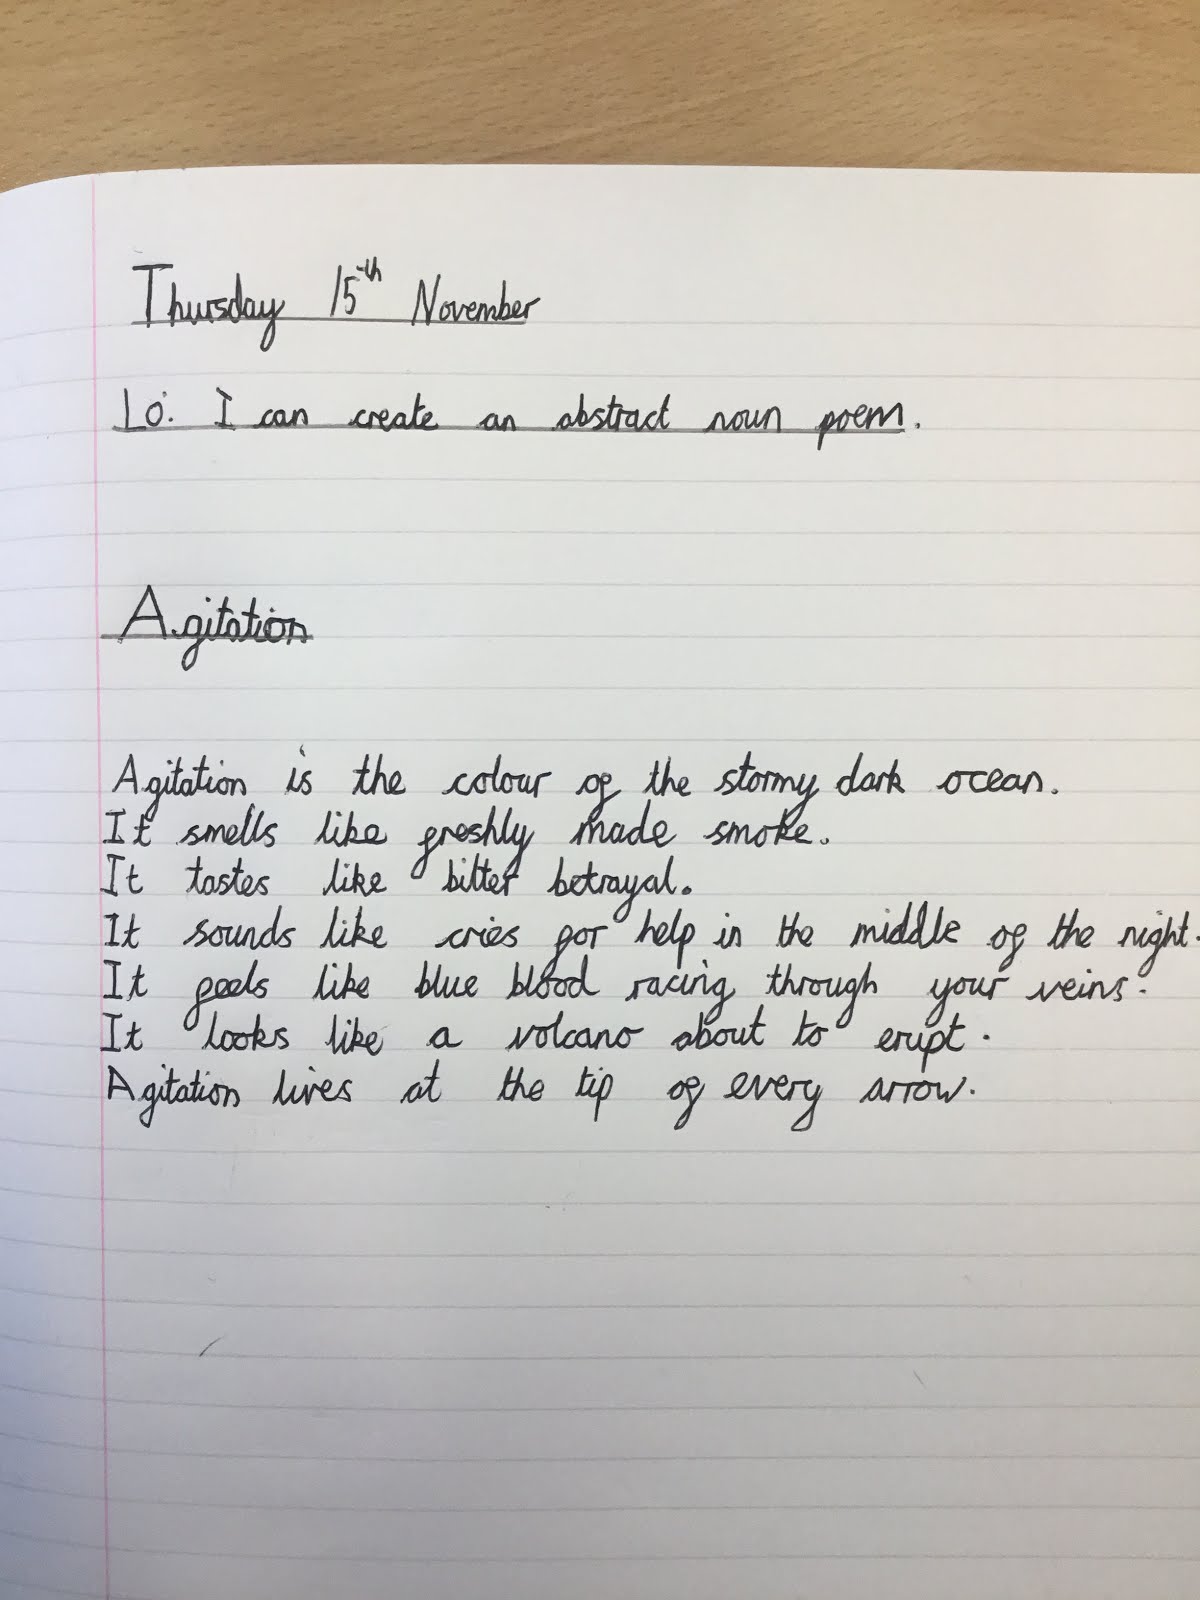 Thursday 15th November
Lo: I can create an abstract noun poem.
Agitation
Agitation is the colour of the stormy dark ocean.
It smells like freshly made smoke.
It tastes like bitter betrayal.
It sounds like cries for help in the middle of the night.
It feels like blue blood racing through your veins.
It looks like a volcano about to erupt.
Agitation lives at the tip of every arrow.